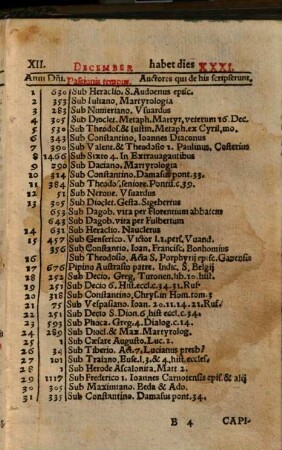 XII. DECEMBER habet dies XXXI.
Anni Dñi. Passionis tempus. Auctores qui de his scripserunt.
1 630 Sub Heraclio. S. Audoenus episc.
2 353 Sub Iuliano, Martyrologia
3 283 Sub Numeriano, Vsuardus
4 305 Sub Dioclet. Metaph. Martyr, veterum 16. Dec.
5 530 Sub Theodos. & Iustin. Metaph. ex Cyril, mo.
6 343 Sub Constantino, Ioannes Diaconus
7 396 Sub Valent. & Theodosio 1. Paulinus, Costerius
8 1466 Sub Sixto 4. In Extrauagantibus
9 290 Sub Daciano. Martyrologia
10 314 Sub Constantino, Damasus pont. 33.
11 384 Sub Theodo, seniore. Ponti. c. 39.
12 51 Sub Nerone. Vsuardus
13 305 Sub Dioclet. Gesta. Sigebertus
653 Sub Dagob. vita per Florentium abbatem
643 Sub Dagob. vita per Fulbertum
14 631 Sub Heraclio. Nauclerus
15 457 Sub Genserico. Victor l. 1. perf. Vuand.
356 Sub Constantio, Ioan, Francisc, Bonhomius
16 Sub Theodosio, Acta S. Porphyrij episc. Gazensis
17 676 Pipino Austrasio patre. Indic, S, Belgij
18 252 Sub Decio, Greg, Turonen, hb. 10. hist.
19 252 Sub Decio 6. Hist. eccl. c. 34. 31. Ruf.
20 318 Sub Constantino, Chrys. in Hom. tom. 3
21 75 Sub Vespasiano. Ioan. 20. 11. 14. 21. Ruf.
22 252 Sub Decio S. Dion. 6 hist eccl. c. 34.
23 593 Sub Phoca. Greg. 4. Dialog. c. 14.
24 289 Sub Diocl. & Max. Martyrolog.
25 1 Sub Cæsare Augusto, Luc. 2.
26 34 Sub Tiberio. Act. 7. Lucianus presb?
27 101 Sub Traiano, Euse. l. 3. & 4, hist. eccles,
28 1 Sub Herode Ascalonita, Matt 2.
29 1117 Sub Frederico 1. Ioannes Carnotensis epis. & alij
30 305 Sub Maximiano. Beda & Ado.
31 335 Sub Constantino. Damasus pont. 34.
E 4 CAPI-